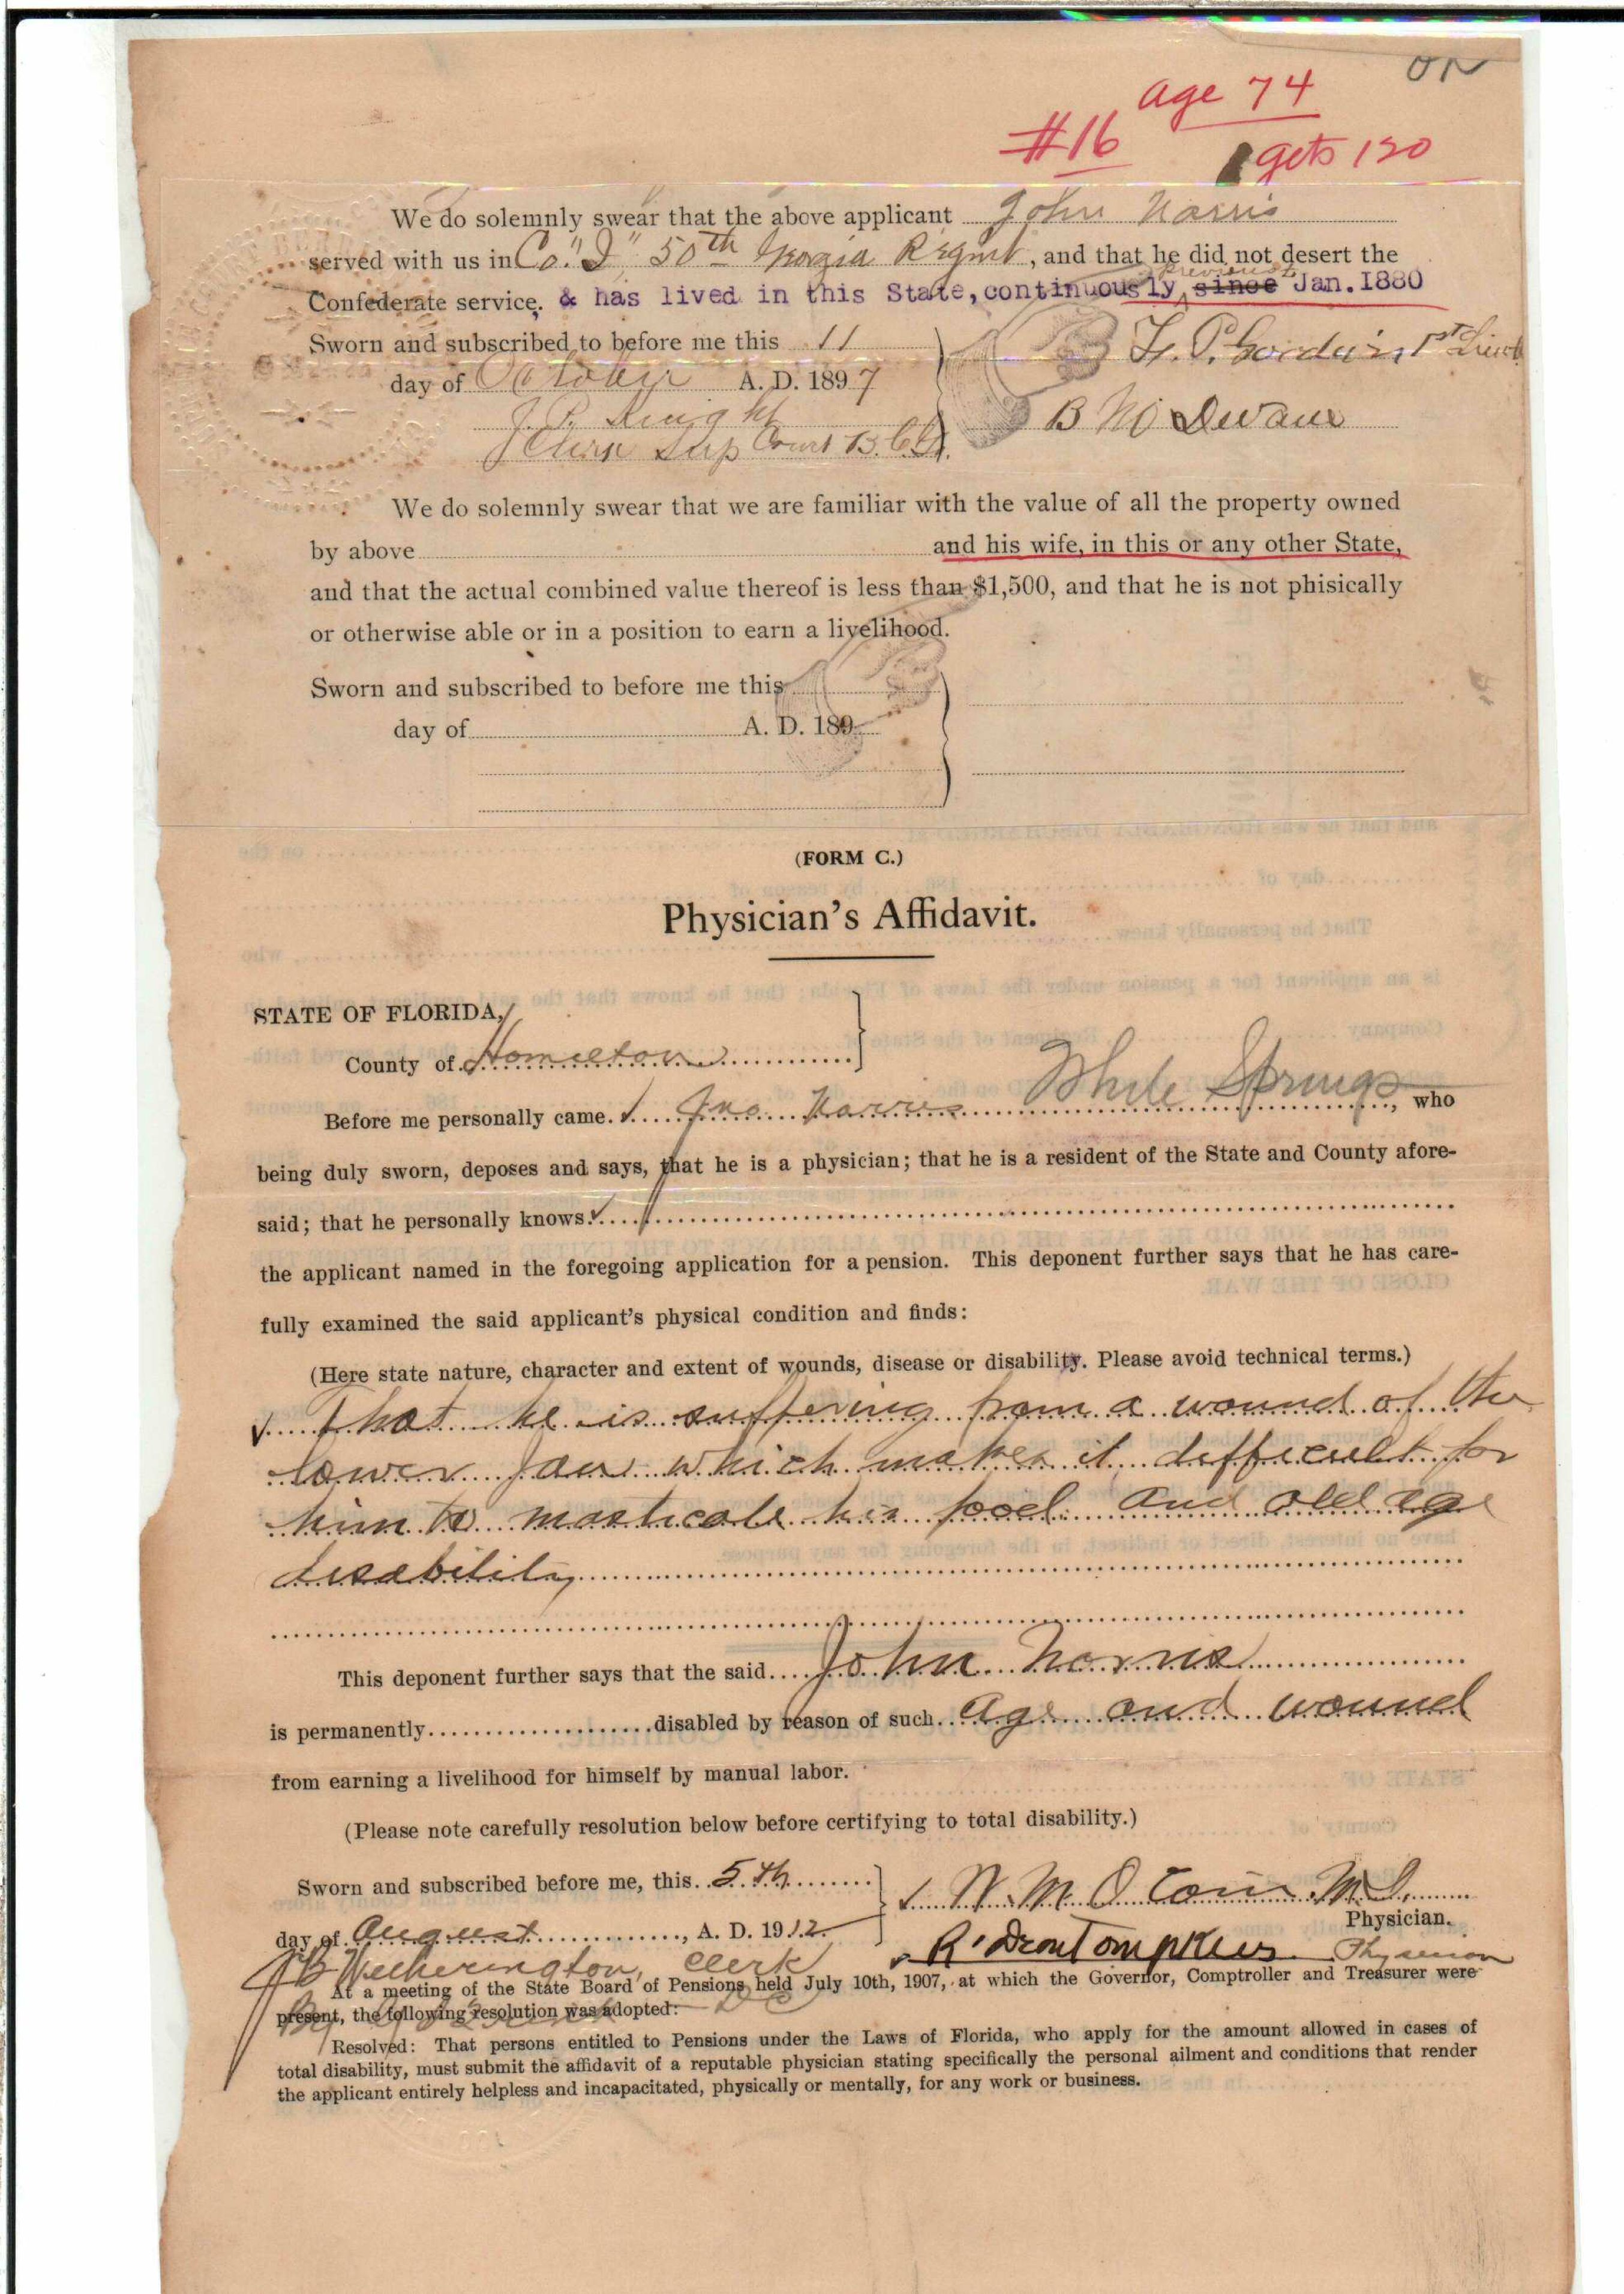 ON
age 74
#16
gets 120
We do solemnly swear that the above applicant John Norris
served with us in Co. "I" 50th Georgia Regmt, and that he did not desert the
Confederate service. & has lived in this State, continuously previous to since Jan. 1880
Sworn and subscribed to before me this 11
day of October A. D. 1897
1st Lieut
J. P. Knight
B M Devane
Clerk Sup Court B. C. Ga.
We do solemnly swear that we are familiar with the value of all the property owned
by above and his wife, in this or any other State,
and that the actual combined value thereof is less than $1,500, and that he is not phisically
or otherwise able or in a position to earn a livelihood.
Sworn and subscribed to before me this
day of A. D. 189
(FORM C.)
Physician's Affidavit.
STATE OF FLORIDA,
County of Hamilton
Before me personally came Jno Norris White Springs, who
being duly sworn, deposes and says, that he is a physician; that he is a resident of the State and County afore-
said; that he personally knows
the applicant named in the foregoing application for a pension. This deponent further says that he has care-
fully examined the said applicant's physical condition and finds:
(Here state nature, character and extent of wounds, disease or disability. Please avoid technical terms.)
That he is suffering from a wound of the
lower Jaw which makes it difficult for
him to masticate his food and old age
disability
This deponent further says that the said John Norris
is permanently disabled by reason of such age and wound
from earning a livelihood for himself by manual labor.
(Please note carefully resolution below before certifying to total disability.)
Sworn and subscribed before me, this 5th
M. D.
Physician.
day of August, A. D. 1912
Tompkins Physician
J B Wetherington, Clerk
At a meeting of the State Board of Pensions held July 10th, 1907, at which the Governor, Comptroller and Treasurer were
present, the following resolution was adopted:
By D C
Resolved: That persons entitled to Pensions under the Laws of Florida, who apply for the amount allowed in cases of
total disability, must submit the affidavit of a reputable physician stating specifically the personal ailment and conditions that render
the applicant entirely helpless and incapacitated, physically or mentally, for any work or business.